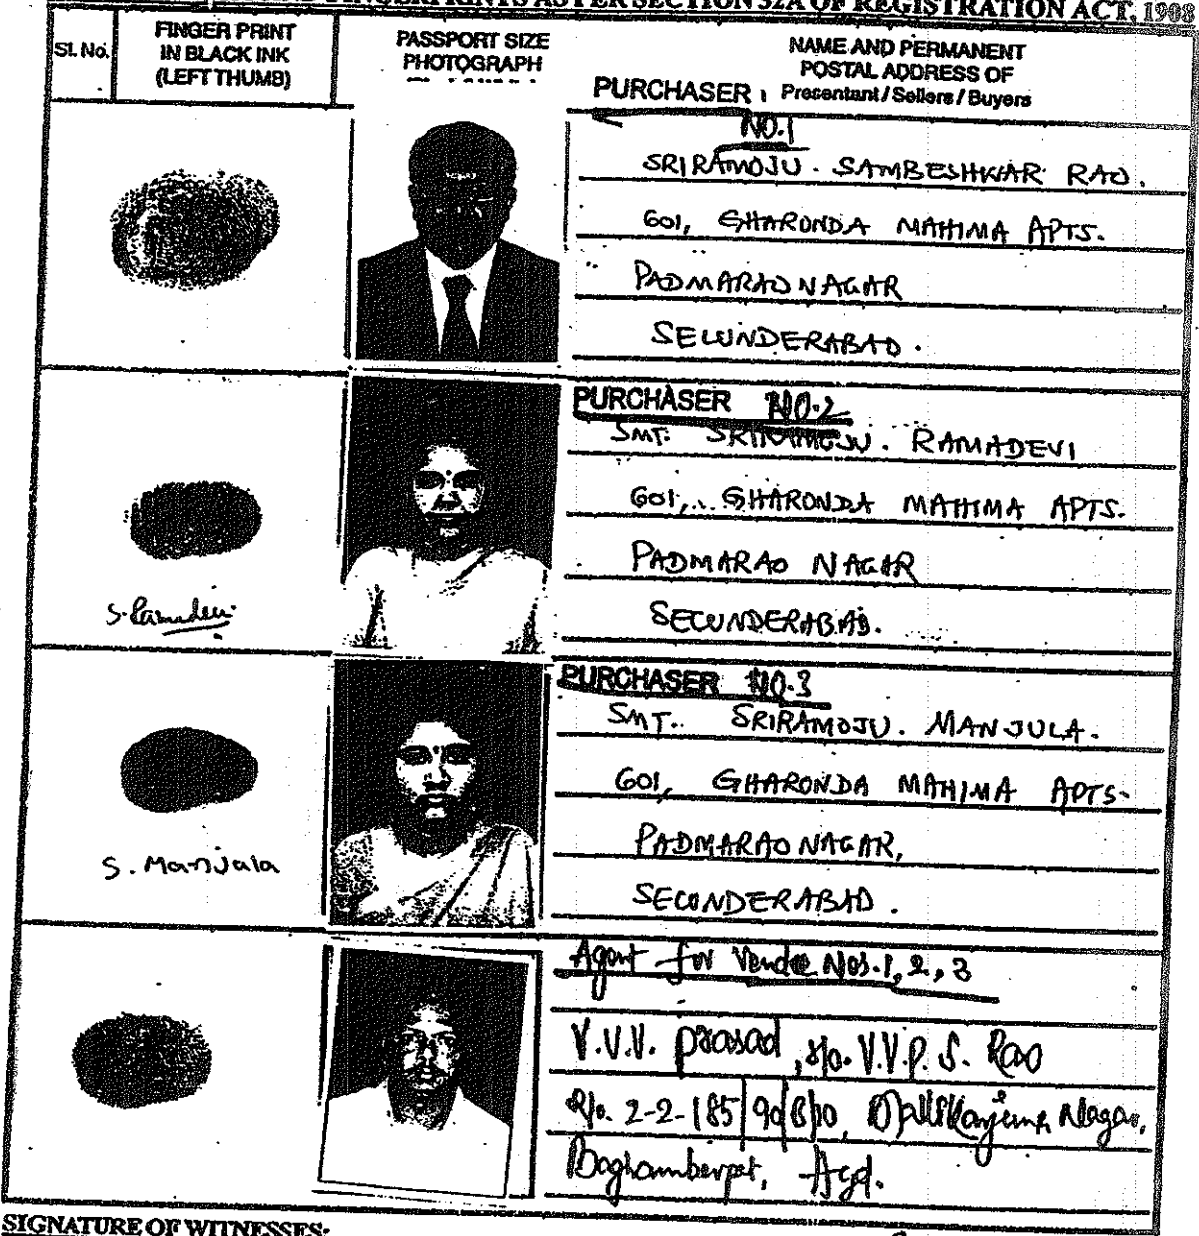 FINGERPRINTS AS PER SECTION 32A OF REGISTRATION ACT, 1908
Sl. No.
FINGER PRINT
IN BLACK INK
(LEFT THUMB)
PASSPORT SIZE
PHOTOGRAPH
NAME AND PERMANENT
POSTAL ADDRESS OF
Presentant / Sellers / Buyers
PURCHASER
NO.1
SRIRAMOJU. SAMBESHWAR RAO.
601, GHARONDA MAHIMA APTS.
PADMARAO NAGAR
SECUNDERABAD.
PURCHASER NO.2
SMT. SRIRAMOJU. RAMADEVI
601, GHARONDA MAHIMA APTS.
PADMARAO NAGAR
SECUNDERABAD.
S. Ramadevi
PURCHASER NO.3
SMT. SRIRAMOJU. MANJULA.
601, GHARONDA MAHIMA APTS.
PADMARAO NAGAR,
SECUNDERABAD.
S. Manjula
Agent for Vendee Nos. 1, 2, 3
V.V.V. Prasad, S/o. V.V.P.S. Rao
R/o. 2-2-185/90/B/10, Mallikarjuna Nagar,
Baghamberpet, Hyd.
SIGNATURE OF WITNESSES: